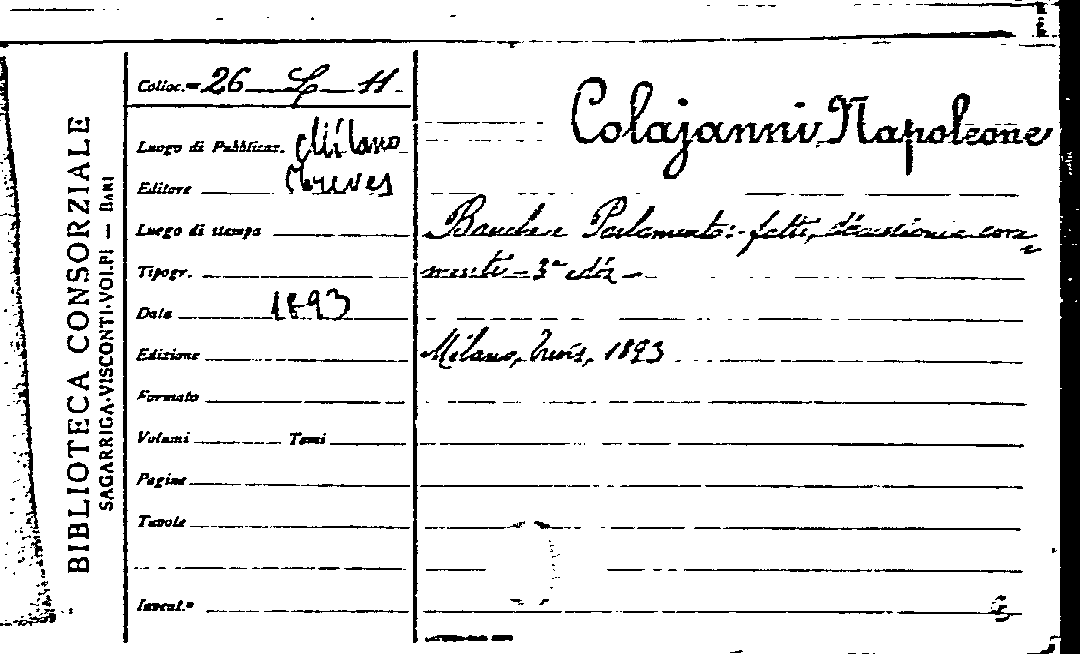 BIBLIOTECA CONSORZIALE
SAGARRIGA-VISCONTI-VOLPI — BARI
Colloc.= 26 L 11
Luogo di Pubblicaz. Milano
Editore Treves
Luogo di stampa
Tipogr.
Data 1893
Edizione
Formato
Volumi Tomi
Pagine
Tavole
Invent.°
Colajanni Napoleone
Banche e Parlamento: fatti, discussioni e com=
menti - 3ª ediz -
Milano, Treves, 1893